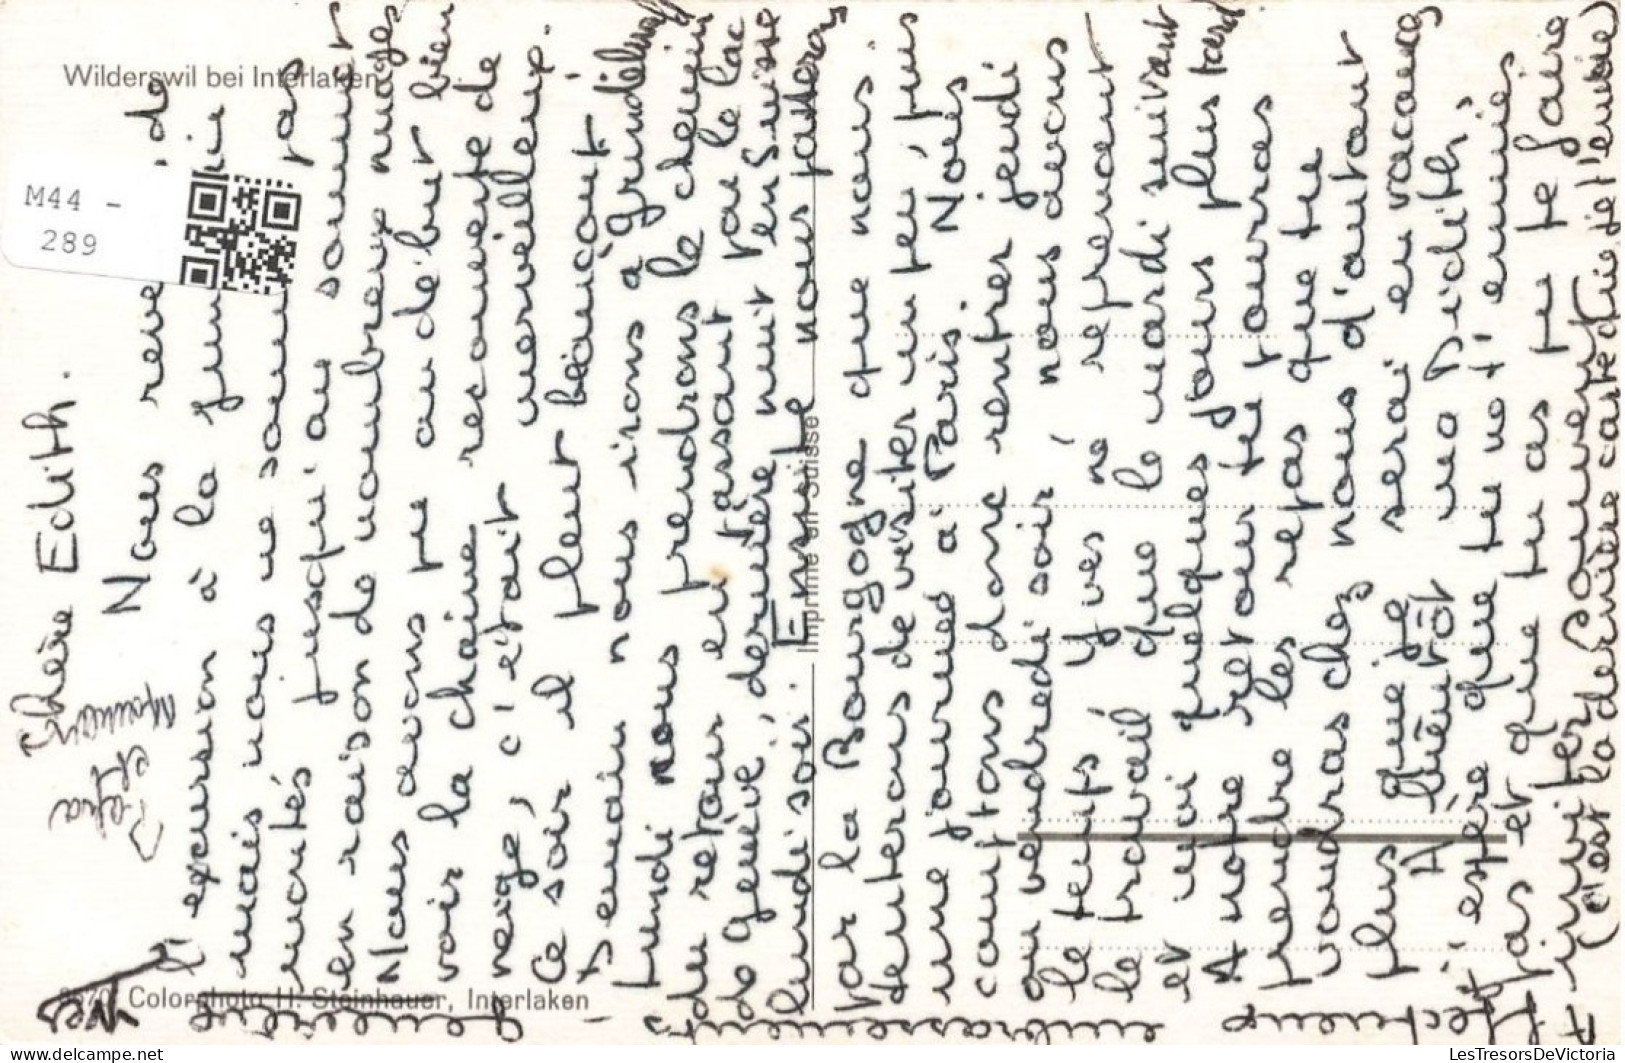 Wilderswil bei Interlaken
M44 -
289
Chère Edith.
Nous reve de
l'excursion à la
mais nous ne somm pas
montés jusqu'au sommet
en raison de nombreux nuages
Nous avons pu au début bien
voir la chaîne recouverte de
neige, c'était merveilleux.
Ce soir il pleut beaucoup!
Demain nous irons à grundelwald
lundi nous prendrons le chemin
du retour en passant par le lac
de genève, dernière nuit en Suisse
lundi soir. Ensuite nous passerons
par la Bourgogne que nous
tenterons de visiter un peu, puis
une journée à Paris. Nous
comptons donc rentrer jeudi
ou vendredi soir, nous avons
le temps, Yves ne reprenant
le travail que le mardi suivant
et moi quelques jours plus tard
A notre retour tu pourras
prendre les repas que tu
voudras chez nous d'autant
plus que je serai en vacances
A bientôt ma Didith,
j'espère que tu ne t'ennuies
pas et que tu as pu te faire
inviter souvent
(c'est la dernière carte que je t'envoie)
Affectueux
embrassements
Yves
Imprimé en Suisse
Colorphoto H. Steinhauer, Interlaken
www.delcampe.net
LesTresorsDeVictoria